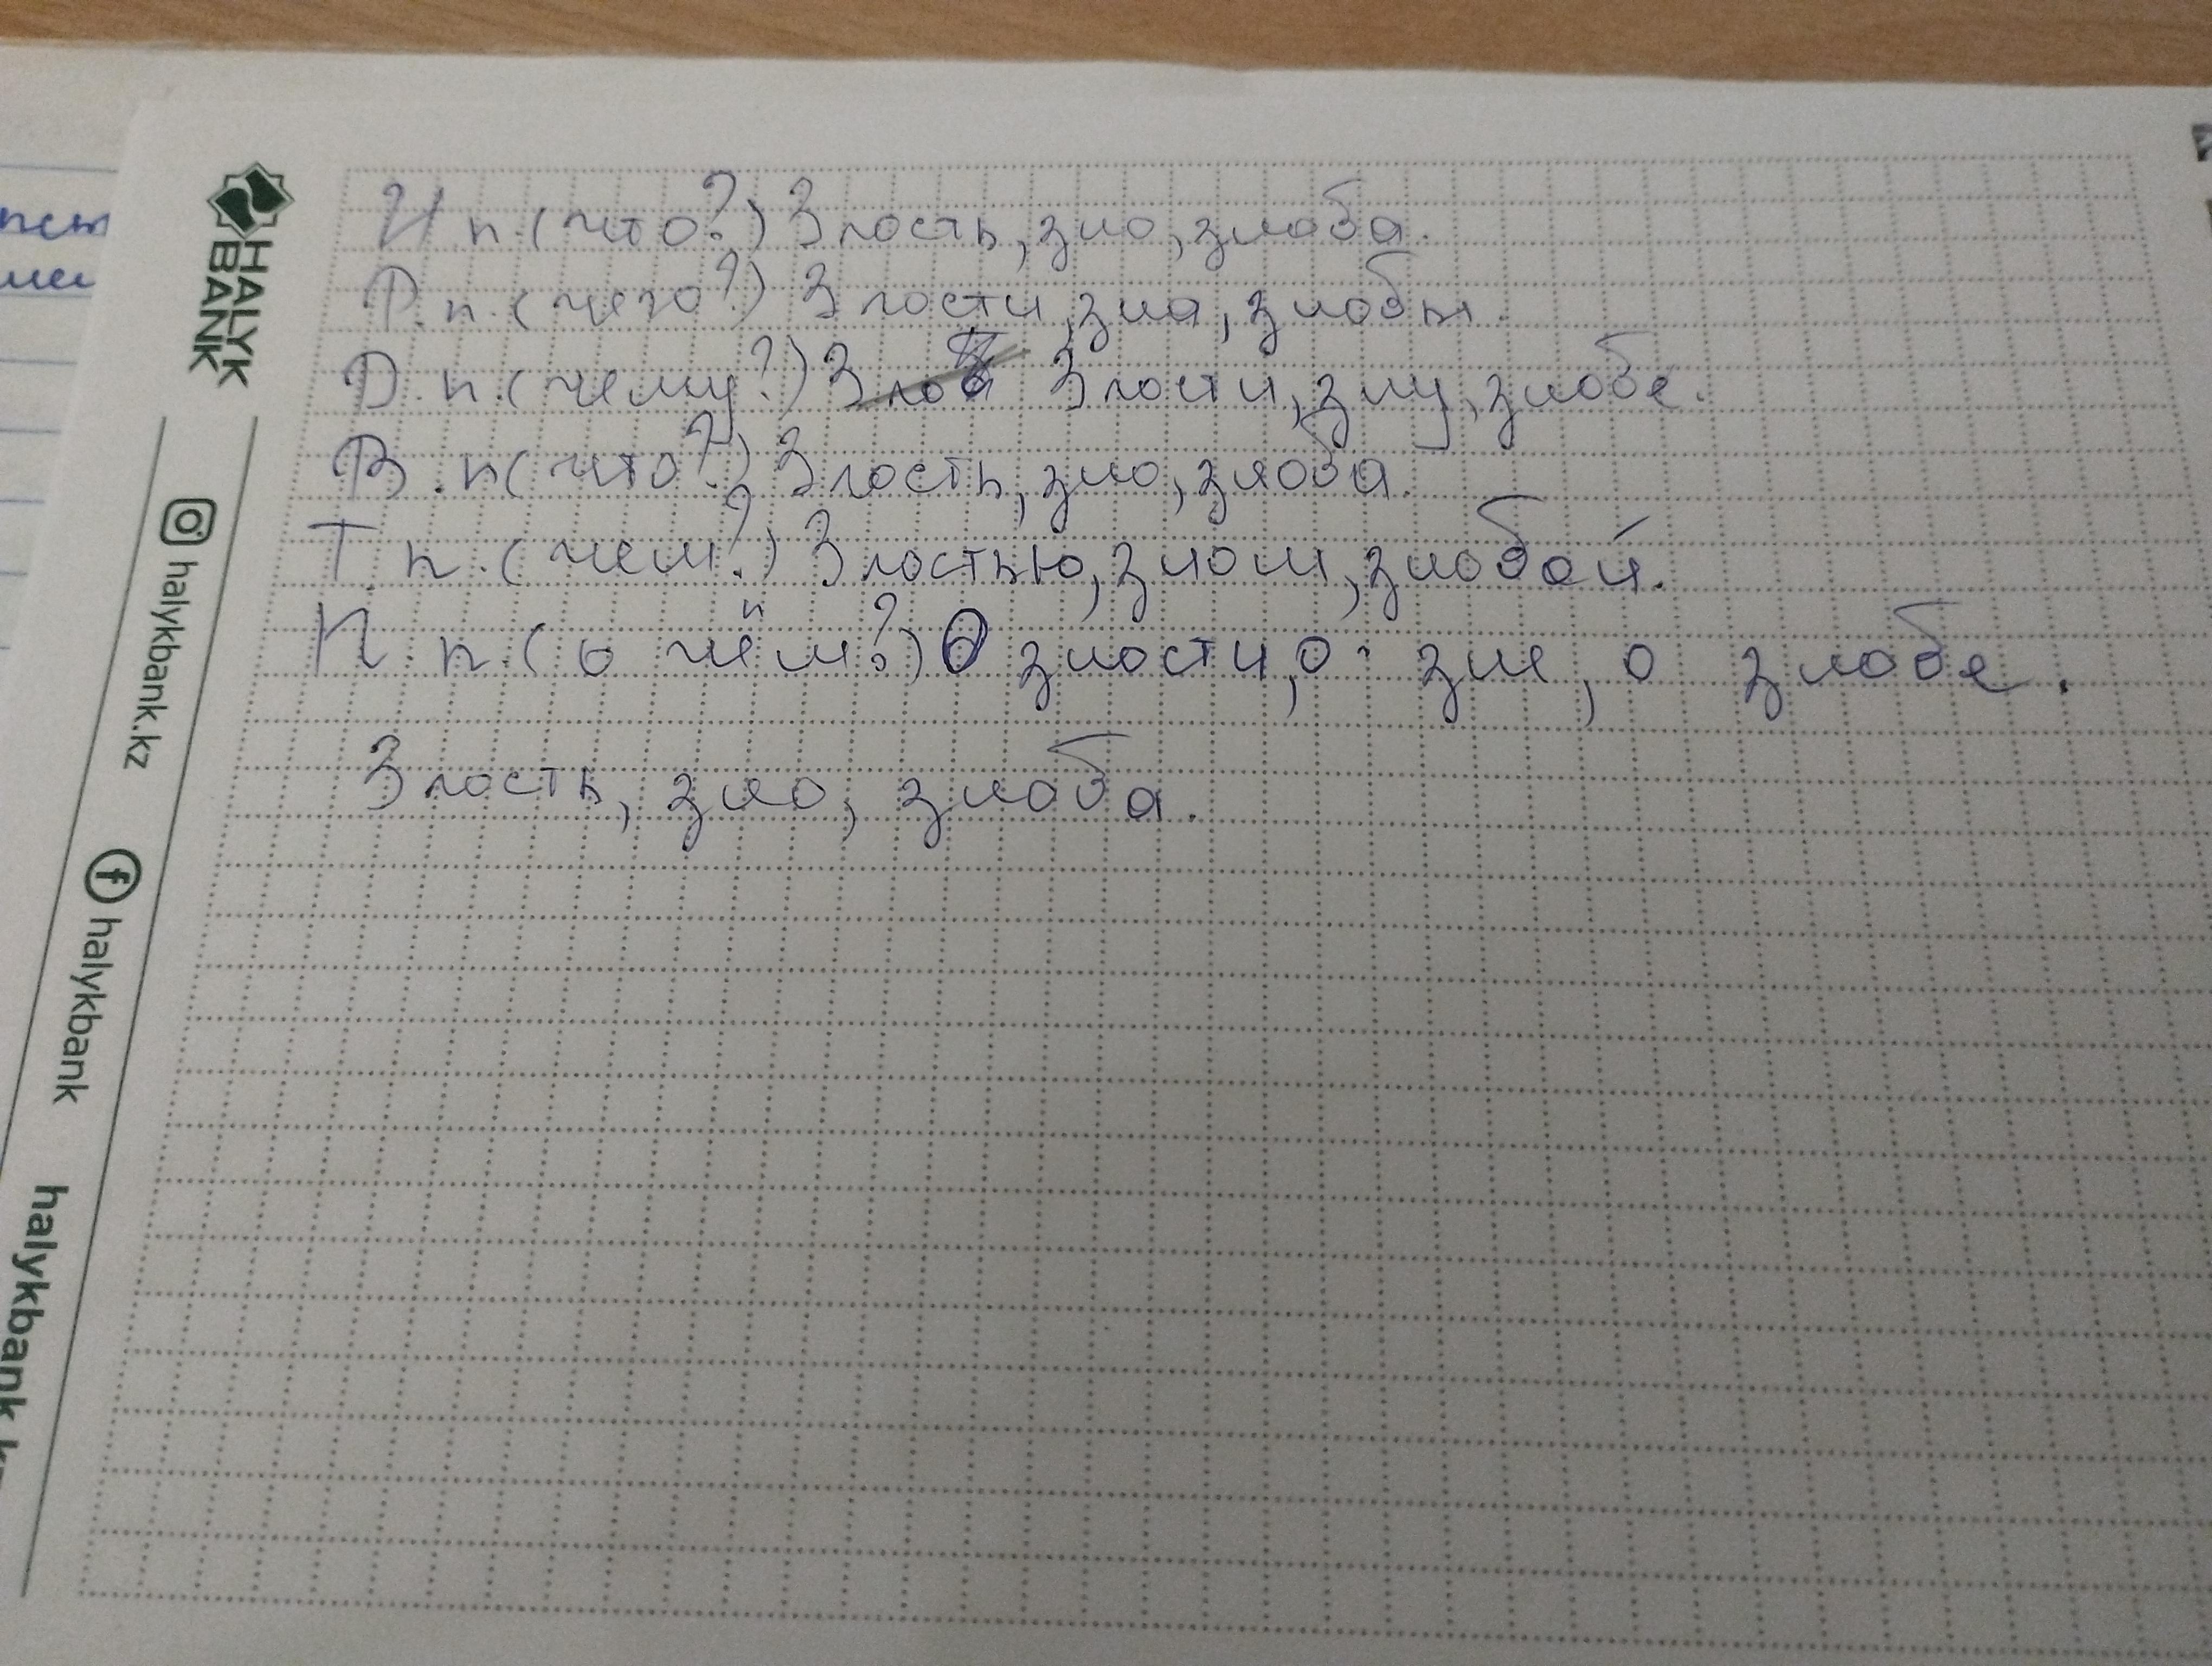 И.п.(что?) Злость, зло, злоба.
Р.п.(чего?) Злости, зла, злобы.
Д.п.(чему?) Злости, злу, злобе.
В.п(что?) Злость, зло, злоба.
Т.п.(чем?) Злостью, злом, злобой.
П.п.(о чём?) О злости, о зле, о злобе.
Злость, зло, злоба.
HALYK
BANK
halykbank.kz
halykbank
halykbank